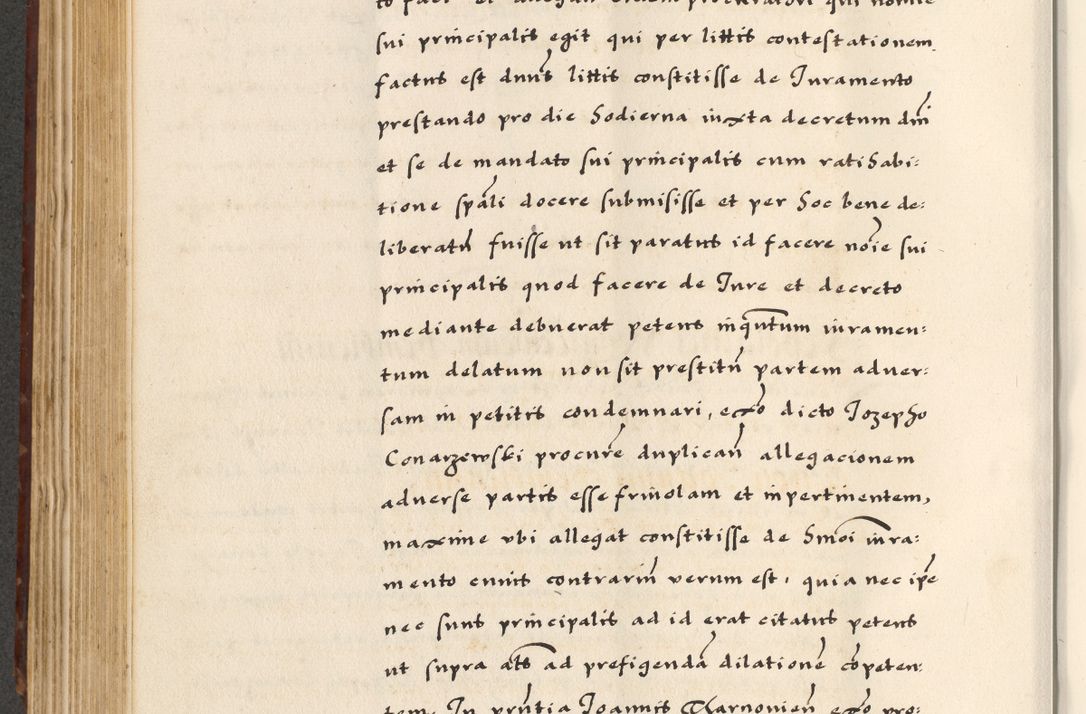 sui principalis egit qui per littis contestationem
factus est dnus littis constitisse de Juramento
prestando pro die hodierna iuxta decretum dni
et se de mandato sui principalis cum ratihabi:
tione spali docere submisisse et per hoc bene de:
liberatu fuisse ut sit paratus id facere noie sui
principalis quod facere de Jure et decreto
mediante debuerat petens inquntum iuramen:
tum delatum non sit prestitu partem aduer:
sam in petitis condemnari, exo dicto Jozepho
Conarzewski procure duplican allegacionem
aduerse partis esse friuolam et inpertinentem,
maxime vbi allegat constitisse de hmoi iura:
mento cuius contrariu verum est, quia nec ipe
nec suus principalis ad id erat citatus petens
ut supra ats ad prefigenda dilatione copeten:
tem. In prntia Joannis Charnouien exo pro: